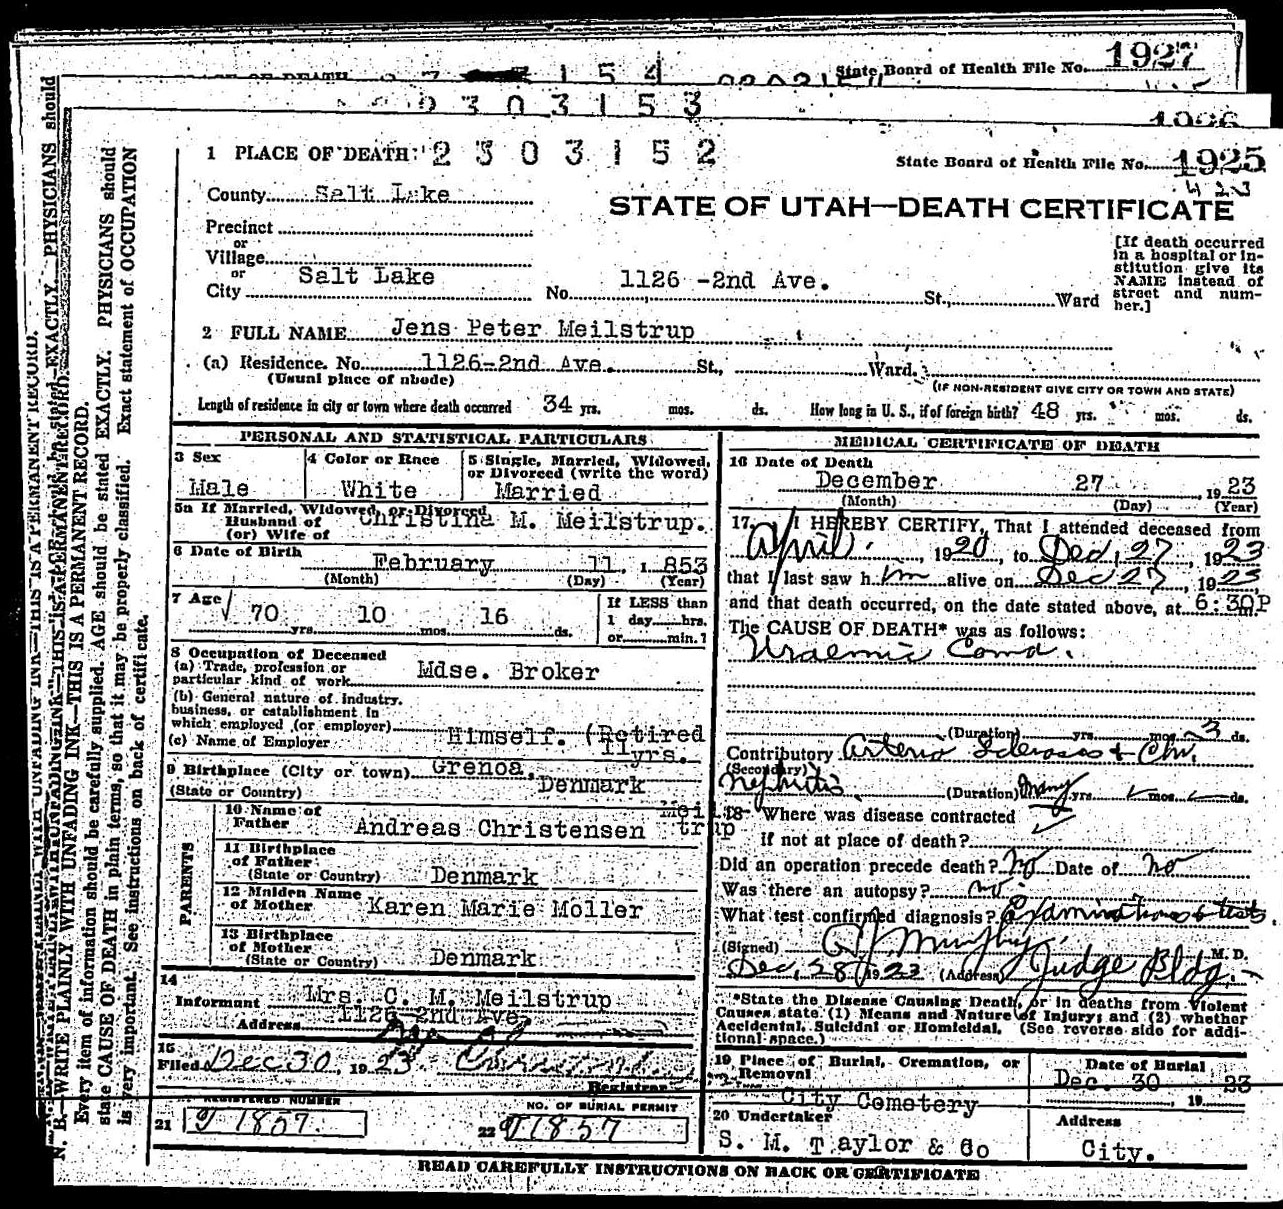 State Board of Health File No. 1927
2303153
1926
1 PLACE OF DEATH: 2303152
State Board of Health File No. 1925
423
County Salt Lake
STATE OF UTAH—DEATH CERTIFICATE
Precinct
or
Village
or
City Salt Lake No. 1126 -2nd Ave. St., Ward
[If death occurred
in a hospital or in-
stitution give its
NAME instead of
street and num-
ber.]
2 FULL NAME Jens Peter Meilstrup
(a) Residence. No. 1126-2nd Ave. St., Ward.
(Usual place of abode) (IF NON-RESIDENT GIVE CITY OR TOWN AND STATE)
Length of residence in city or town where death occurred 34 yrs. mos. ds. How long in U. S., if of foreign birth? 48 yrs. mos. ds.
PERSONAL AND STATISTICAL PARTICULARS
3 Sex
Male
4 Color or Race
White
5 Single, Married, Widowed,
or Divorced (write the word)
Married
5a If Married, Widowed, or Divorced
Husband of Christina M. Meilstrup.
(or) Wife of
6 Date of Birth
February 11, 1853
(Month) (Day) (Year)
7 Age
70 yrs. 10 mos. 16 ds.
If LESS than
1 day hrs.
or min.?
8 Occupation of Deceased
(a) Trade, profession or
particular kind of work Mdse. Broker
(b) General nature of industry,
business, or establishment in
which employed (or employer) Himself. (Retired
11yrs.
(c) Name of Employer
9 Birthplace (City or town) Grenoa,
(State or Country) Denmark
PARENTS
10 Name of
Father Andreas Christensen Meilstrup
11 Birthplace
of Father
(State or Country) Denmark
12 Maiden Name
of Mother Karen Marie Moller
13 Birthplace
of Mother
(State or Country) Denmark
14
Informant Mrs. C. M. Meilstrup
Address 1126-2nd Ave.
15
Filed Dec 30, 1923
Registrar
REGISTERED NUMBER
21 1857
NO. OF BURIAL PERMIT
22 1857
MEDICAL CERTIFICATE OF DEATH
16 Date of Death
December 27, 1923
(Month) (Day) (Year)
17. I HEREBY CERTIFY, That I attended deceased from
April, 1920, to Dec, 27, 1923
that I last saw h im alive on Dec 27, 1923
and that death occurred, on the date stated above, at 6:30P m.
The CAUSE OF DEATH* was as follows:
Uraemic Coma.
(Duration) yrs. mos. 3 ds.
Contributory Arterio Sclerosis & Chr.
(Secondary)
Nephritis (Duration) Many yrs. mos. ds.
18 Where was disease contracted
if not at place of death?
Did an operation precede death? No Date of No
Was there an autopsy? no.
What test confirmed diagnosis? Examinations & tests.
(Signed) Murphy M. D.
Dec, 28, 1923 (Address) Judge Bldg.
*State the Disease Causing Death, or in deaths from Violent
Causes, state (1) Means and Nature of Injury; and (2) whether
Accidental, Suicidal or Homicidal. (See reverse side for addi-
tional space.)
19 Place of Burial, Cremation, or
Removal
City Cemetery
Date of Burial
Dec. 30 1923
20 Undertaker
S. M. Taylor & Co
Address
City.
READ CAREFULLY INSTRUCTIONS ON BACK OF CERTIFICATE
N. B.—WRITE PLAINLY WITH UNFADING INK—THIS IS A PERMANENT RECORD.
Every item of information should be carefully supplied. AGE should be stated EXACTLY. PHYSICIANS should
state CAUSE OF DEATH in plain terms, so that it may be properly classified. Exact statement of OCCUPATION
is very important. See instructions on back of certificate.